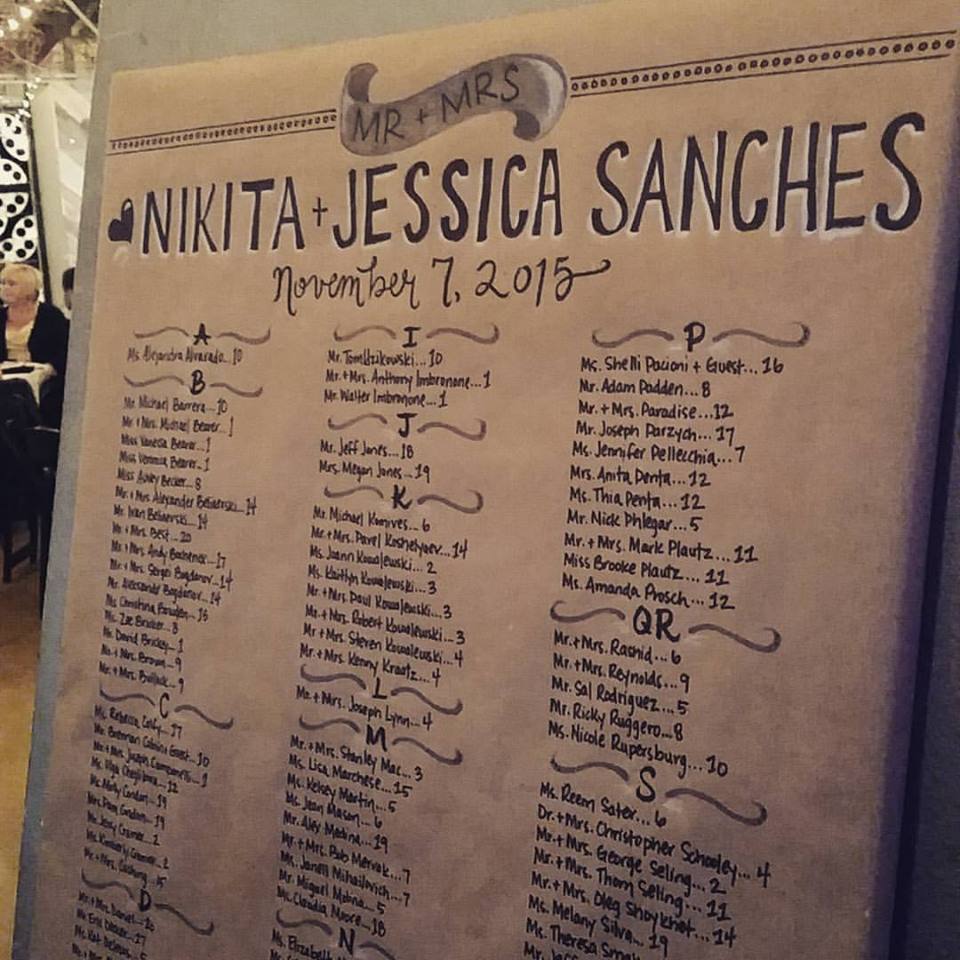 MR + MRS
NIKITA + JESSICA SANCHES
November 7, 2015
A
Ms. Alejandra Alvarado...10
B
Mr. Michael Barrera...10
Mr. + Mrs. Michael Bearer...1
Miss Vanessa Bearer...1
Miss Veronica Bearer...1
Miss Ashley Becker...8
Mr. + Mrs. Alexander Beliaevski...14
Mr. Ivan Beliaevski...14
Mr. + Mrs. Best...20
Mr. + Mrs. Andy
Mr. + Mrs. Sergei Bogdanov...14
Mr. Aleksandr Bogdanov...14
Ms. Christina
Ms. Zoe Brucker...8
Mr. David Brickey...1
Mr. + Mrs. Brown...9
Mr. + Mrs. Bullock...9
C
Ms. Rebecca
Mr. Brennan + Guest...10
Mr. + Mrs. Joseph
Ms. Olga
Ms. Molly Condon...19
Mrs. Pam Condon...19
Mr. Jody Cramer...2
Ms. Kimberly Cramer...2
Mr. + Mrs. Cushing...15
D
Mr. + Mrs. Daniel
Mr. Eric
Ms. Kat
I
Mr. Tom 10
Mr. + Mrs. Anthony Imbronone...1
Mr. Walter Imbronone...1
J
Mr. Jeff Jones...18
Mrs. Megan Jones...19
K
Mr. Michael Komives...6
Mr. + Mrs. Pavel Koshelyaev...14
Ms. Joann Kowalewski...2
Ms. Kaitlyn Kowalewski...3
Mr. + Mrs. Paul Kowalewski...3
Mr. + Mrs. Robert Kowalewski...3
Mr. + Mrs. Steven Kowalewski...4
Mr. + Mrs. Kenny Kraatz...4
L
Mr. + Mrs. Joseph Lynn...4
M
Mr. + Mrs. Stanley Mac...3
Ms. Lisa Marchese...15
Ms. Kelsey Martin...5
Ms. Jean Mason...6
Mr. Alex Medina...19
Mr. + Mrs. Bob Mervak...7
Ms. Janell Mihailovich...7
Mr. Miguel Molina...5
Ms. Claudia Moore...18
N
Ms. Elizabeth
P
Ms. Shelli Pacioni + Guest...16
Mr. Adam Padden...8
Mr. + Mrs. Paradise...12
Mr. Joseph Parzych...17
Ms. Jennifer Pellecchia...7
Mrs. Anita Penta...12
Ms. Thia Penta...12
Mr. Nick Phlegar...5
Mr. + Mrs. Mark Plautz...11
Miss Brooke Plautz...11
Ms. Amanda Prosch...12
QR
Mr. + Mrs. Rashid...6
Mr. + Mrs. Reynolds...9
Mr. Sal Rodriguez...5
Mr. Ricky Ruggero...8
Ms. Nicole Rupersburg...10
S
Ms. Reem Sater...6
Dr. + Mrs. Christopher Schooley...4
Mr. + Mrs. George Seling...2
Mr. + Mrs. Thom Seling...11
Mr. + Mrs. Oleg Shoykhet...14
Ms. Melany Silva...19
Ms. Theresa